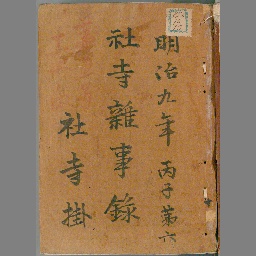 明治九年 丙子第六
社寺雜事錄
社寺掛